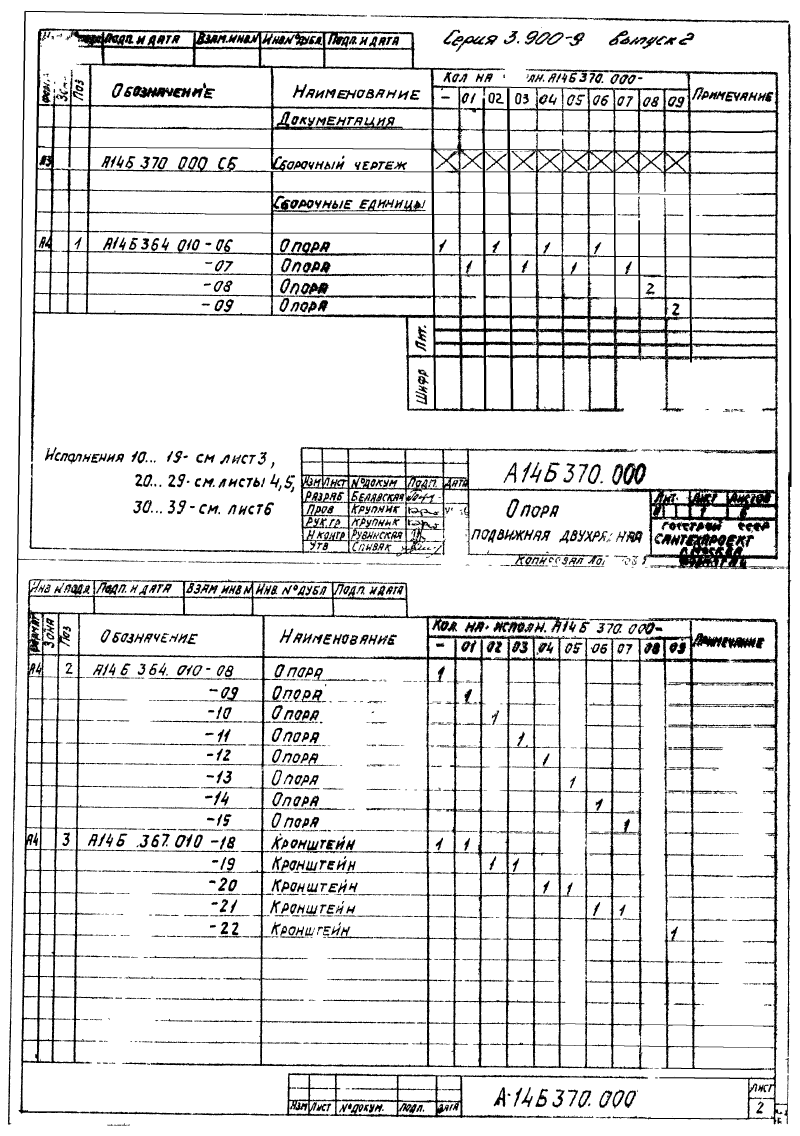 Подп. и дата Взам.инв.N Инв.N°дубл. Подп. и дата
Серия 3.900-9 выпуск 2
Зона Поз Обозначение Наименование Кол на исполн. А14Б370.000- Примечание
- 01 02 03 04 05 06 07 08 09
Документация
А3 А14Б 370 000 СБ Сборочный чертеж
Сборочные единицы
А4 1 А14Б364 010-06 Опора 1 1 1 1
-07 Опора 1 1 1 1
-08 Опора 2
-09 Опора 2
Лит.
Шифр
Исполнения 10... 19- см лист3,
20... 29- см.листы 4,5,
30... 39- см.лист6
Изм Лист N°докум Подп. Дата
Разраб Белавская
Пров Крупник
Рук.гр Крупник
Н.контр Рувинская
Утв Спивак
А14Б370.000
Опора
подвижная двухрядная
Лит. Лист Листов
1 6
Госстрой СССР
Сантехпроект
г.Москва
Копировал
Инв N подл. Подп. и дата Взам инв N Инв. N°дубл Подп. и дата
Формат Зона Поз Обозначение Наименование Кол. на исполн. А14Б 370.000- Примечание
- 01 02 03 04 05 06 07 08 09
А4 2 А14Б 364.010-08 Опора 1
-09 Опора 1
-10 Опора 1
-11 Опора 1
-12 Опора 1
-13 Опора 1
-14 Опора 1
-15 Опора 1
А4 3 А14Б .367.010-18 Кронштейн 1 1
-19 Кронштейн 1 1
-20 Кронштейн 1 1
-21 Кронштейн 1 1
-22 Кронштейн 1
Изм Лист N°докум. Подп. Дата
А14Б370.000
Лист
2